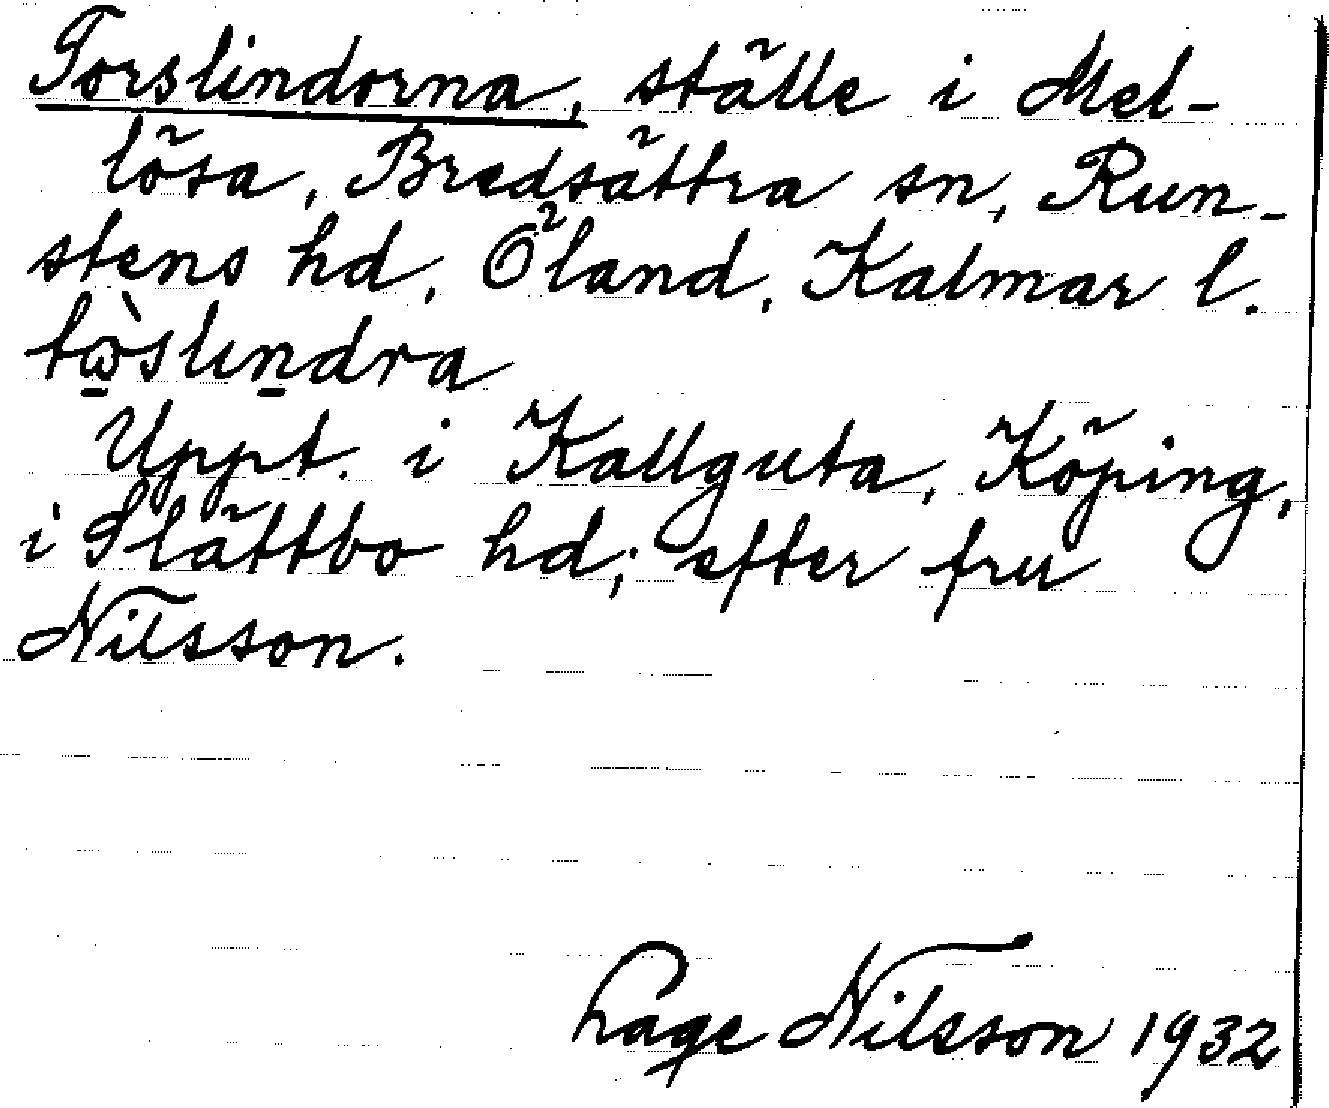 Torslindorna, ställe i Mel-
lösa, Bredsättra sn, Run-
stens hd, Öland, Kalmar l.
Uppt. i Kallguta, Köping,
i Slättbo hd; efter fru
Nilsson.
Lage Nilsson 1932